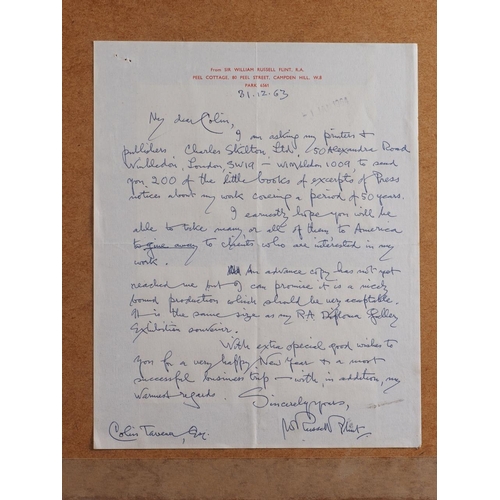 From SIR WILLIAM RUSSELL FLINT, R.A.
PEEL COTTAGE, 80 PEEL STREET, CAMPDEN HILL, W.8
PARK 6561
31.12.63
My dear Colin,
I am asking my printers &
publishers Charles Skilton Ltd. 50 Alexandra Road
Wimbledon, London, SW19 – Wimbledon 1009, to send
you 200 of the little books of excerpts of Press
notices about my work covering a period of 50 years.
I earnestly hope you will be
able to take many or all of them to America
to give away to clients who are interested in my
work.
An advance copy has not yet
reached me but I can promise it is a nicely
bound production which should be very acceptable.
It is the same size as my R.A Diploma Gallery
Exhibition souvenir.
With extra special good wishes to
you for a very happy New Year & a most
successful business trip – with, in addition, my
warmest regards. Sincerely yours,
Colin Esq. W Russell Flint.